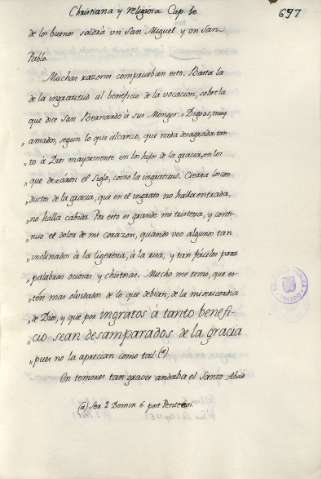 Christiana y religiosa Cap. 60
697
de los buenos saldría un San Miguel y un San
Pablo.
Muchas razones comprueban esto. Basta la
de la ingratitud al beneficio de la vocacion, sobre la
que dice San Bernardo à sus Monges: Digoos, muy
amados, segun lo que alcanzo, que nada desagrada tan
to à Dios mayormente en los hijos de la gracia, en los
que dexaron el siglo, como la ingratitud. Cierra los con
ductos de la gracia, que en el ingrato no halla entrada,
no halla cabida. Por esto es grande mi tristeza, y conti
nuo el dolor de mi corazon, quando veo algunos tan
inclinados à la ligereza, à la risa, y tan faciles para
palabras ociosas y chistosas. Mucho me temo, que es
tén mas olvidados de lo que debian, de la misericordia
de Dios, y que por ingratos à tanto benefi
cio sean desamparados de la gracia
pues no la aprecian como tal (a)
En temores tan graves andaba el Santo Abad
(a) Ser. 2 Domin 6 post Pentecos.